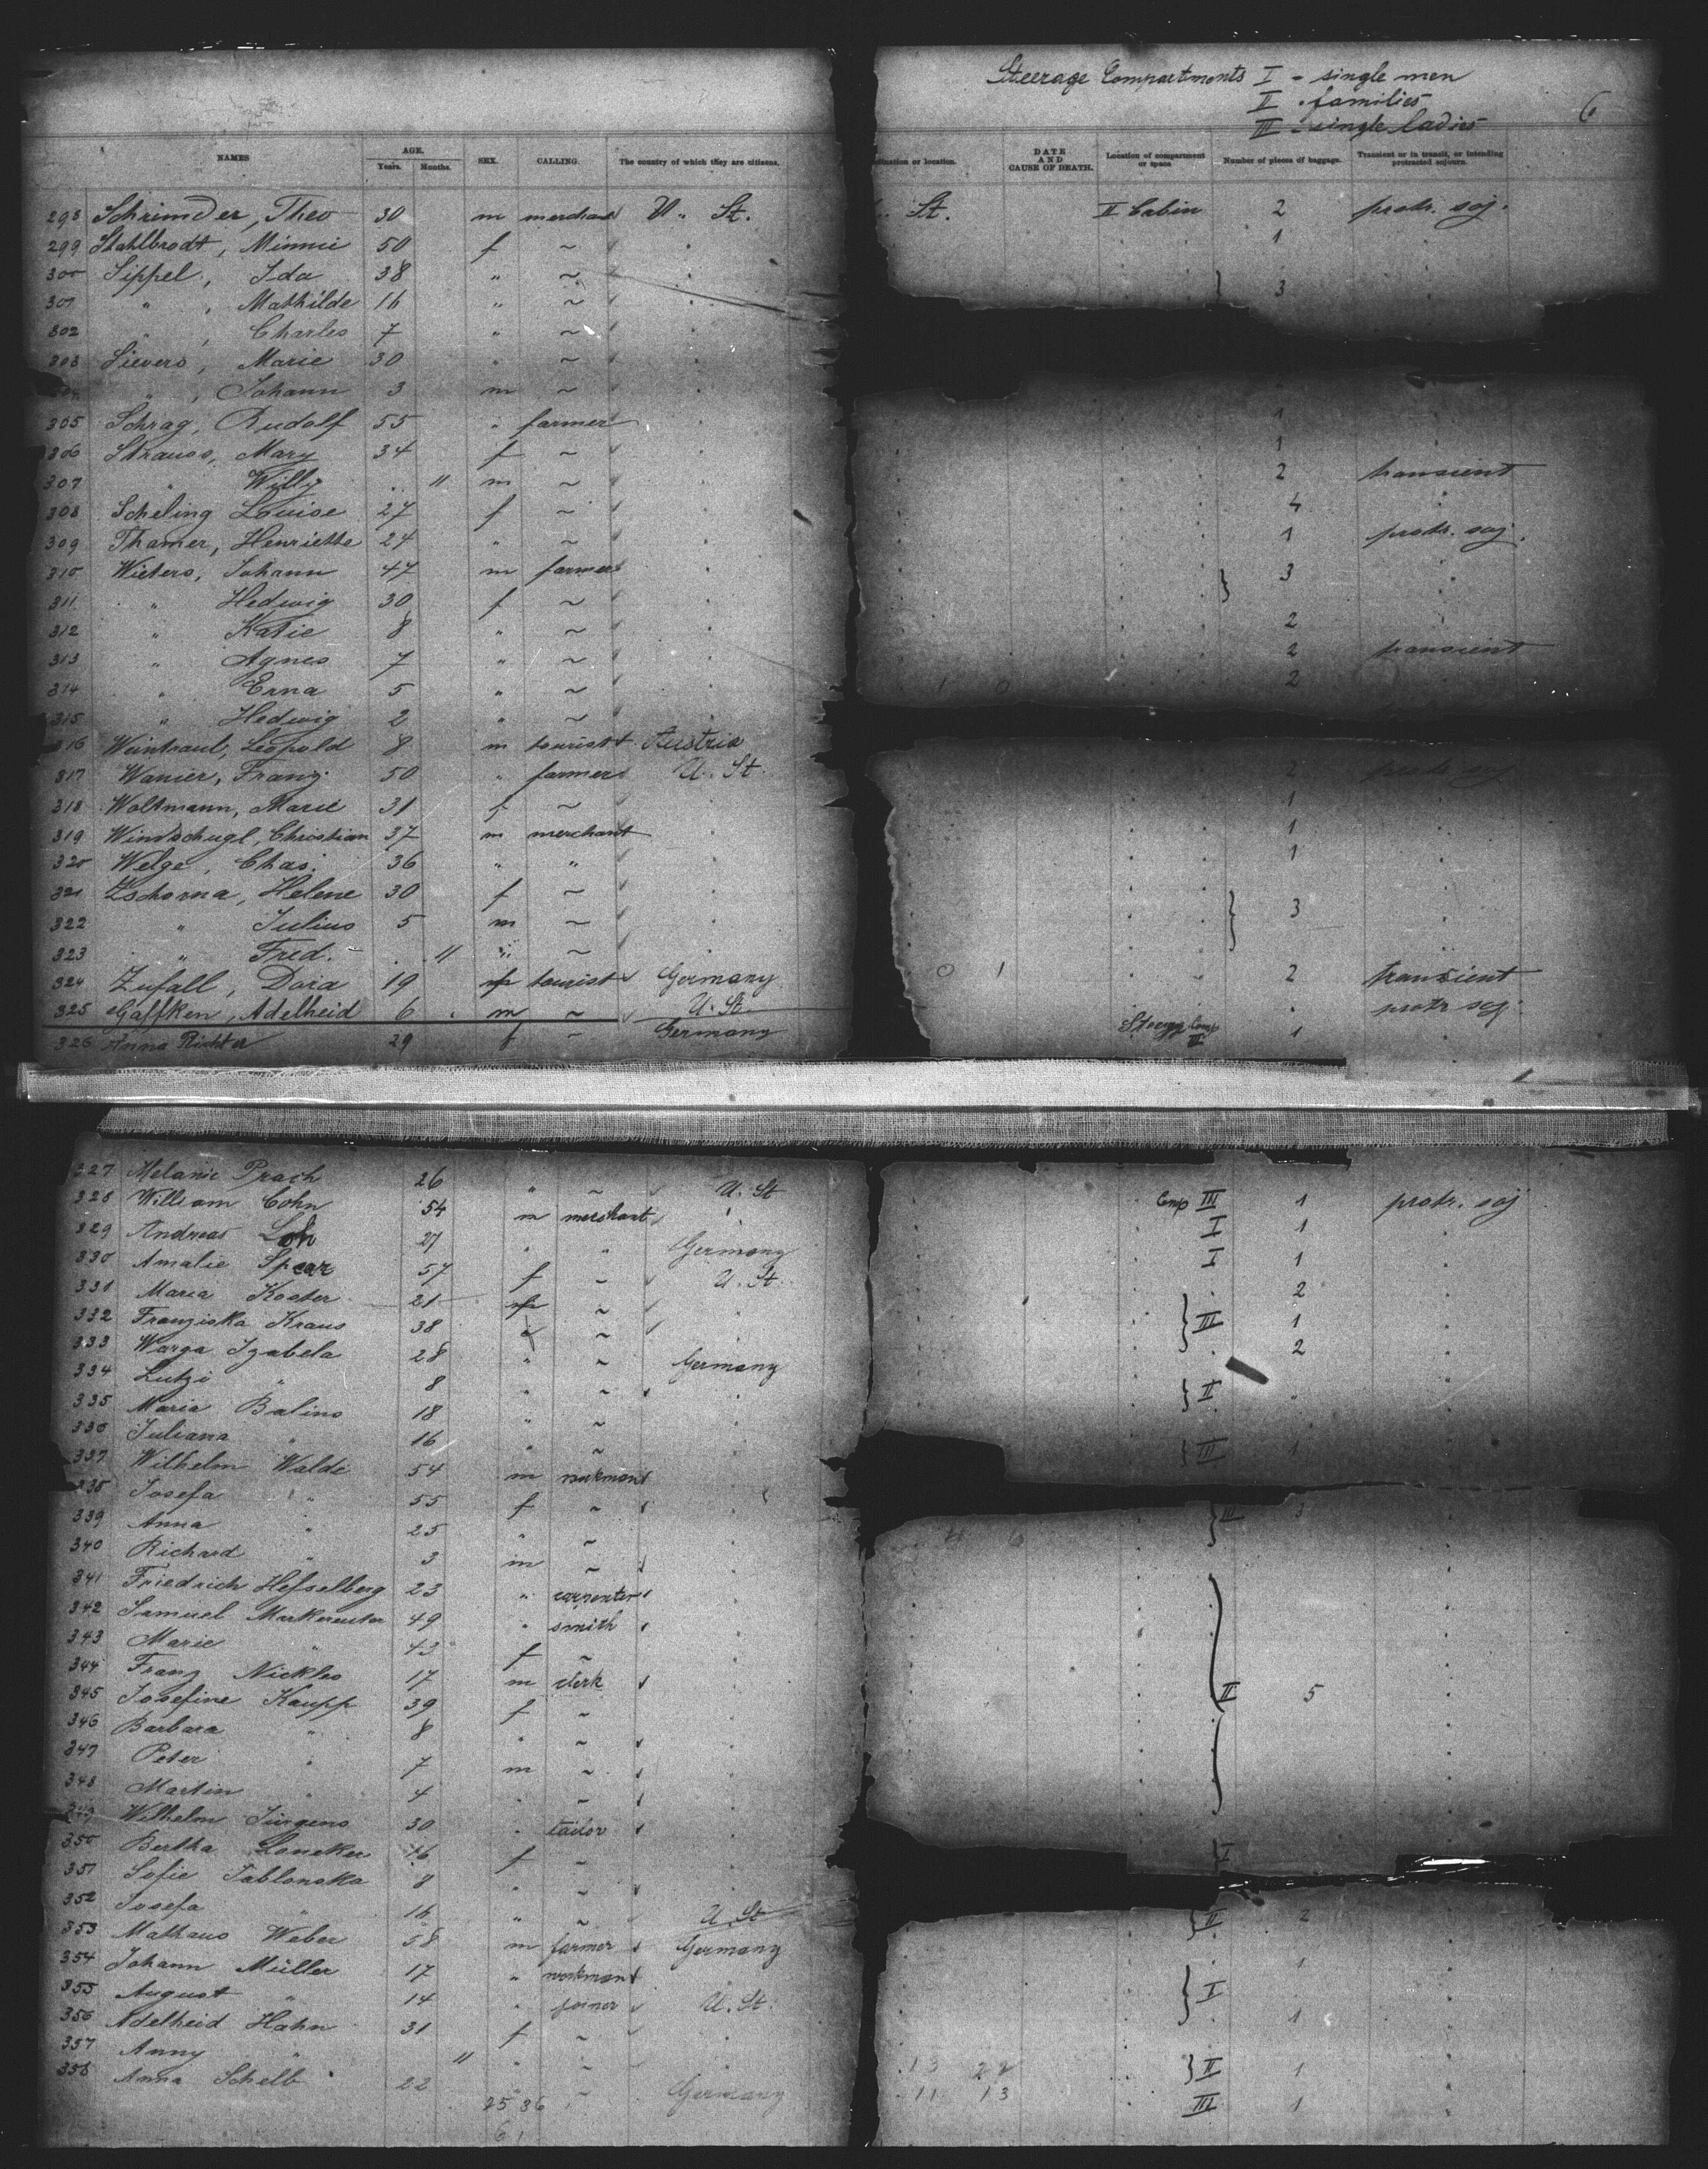 Steerage Compartments I - single men
II - families
III - single ladies
6
NAMES
AGE.
Years. Months.
SEX.
CALLING.
The country of which they are citizens.
location.
DATE AND CAUSE OF DEATH.
Location of compartment or space
Number of pieces of baggage.
Transient or in transit, or intending protracted sojourn.
298 Schrimder, Theo 30 m merchant U. St. St. II Cabin 2 protr. soj.
299 Stahlbrodt, Minnie 50 f ~ 1
300 Sippel, Ida 38 " ~ } 3
301 " , Mathilde 16 " ~
302 " , Charles 7 " ~
303 Sievers, Marie 30 " ~
" , Johann 3 m ~
305 Schrag, Rudolf 55 " farmer 1
306 Strauss, Mary 34 f ~ 1
307 " Willy 11 m ~ 2 transient
308 Scheling Louise 27 f ~ 4
309 Thamer, Henriette 24 " ~ 1 protr. soj.
310 Wieters, Johann 47 m farmer } 3
311 " Hedwig 30 f ~
312 " Katie 8 " ~ 2
313 " Agnes 7 " ~ 2 transient
314 " Erna 5 " ~ 1 0 2
315 " Hedwig 2 " ~
316 Weintraub, Leopold 8 m tourist Austria
317 Wanier, Franz 50 " farmer U. St. 2 protr. soj.
318 Woltmann, Marie 31 f ~ 1
319 Windschugl, Christian 37 m merchant 1
320 Welge, Chas. 36 " " 1
321 Zschorna, Helene 30 f ~
322 " Julius 5 m ~ } 3
323 " Fred. 11 " ~
324 Zufall, Dora 19 tourist Germany 0 1 2 transient
325 Gaffken, Adelheid 6 m ~ U. St. protr. soj.
326 Anna Richter 29 f ~ Germany Steerage Comp III 1
327 Melanie Prach 26 " ~ U. St Comp III 1 protr. soj
328 William Cohn 54 m merchant I 1
329 Andreas Loh 27 " " Germany I 1
330 Amalie Spear 57 f ~ U. St. 2
331 Maria Koster 21 ~ } III 1
332 Franziska Kraus 38 ~ 2
333 Warga Izabela 28 " ~ Germany
334 Lutzi " 8 " ~ } II "
335 Maria Balins 18 " ~
336 Juliana " 16 " ~ } III 1
337 Wilhelm Walde 54 m workman
338 Josefa " 55 f ~ } III 3
339 Anna " 25 " ~
340 Richard " 3 m ~
341 Friedrich Hesselberg 23 " carpenter
342 Samuel Markereuter 49 " smith
343 Marie " 43 f ~
344 Franz Nickles 17 m clerk
345 Josefine Kaupp 39 f ~ II 5
346 Barbara " 8 " ~
347 Peter " 7 m ~
348 Martin " 4 " ~
349 Wilhelm Jürgens 30 " tailor
350 Bertha Loneker 16 f ~ } I
351 Sofie Jablonska 8 " ~
352 Josefa " 16 " ~ U. St } II 2
353 Mathaus Weber 58 m farmer Germany 1
354 Johann Müller 17 " workman } I
355 August " 14 " joiner U. St.
356 Adelheid Hahn 31 f ~ 1
357 Anny " 11 " ~ 13 22 } II 1
358 Anna Schelb 22 " ~ Germany 11 13 III 1
25 36
61